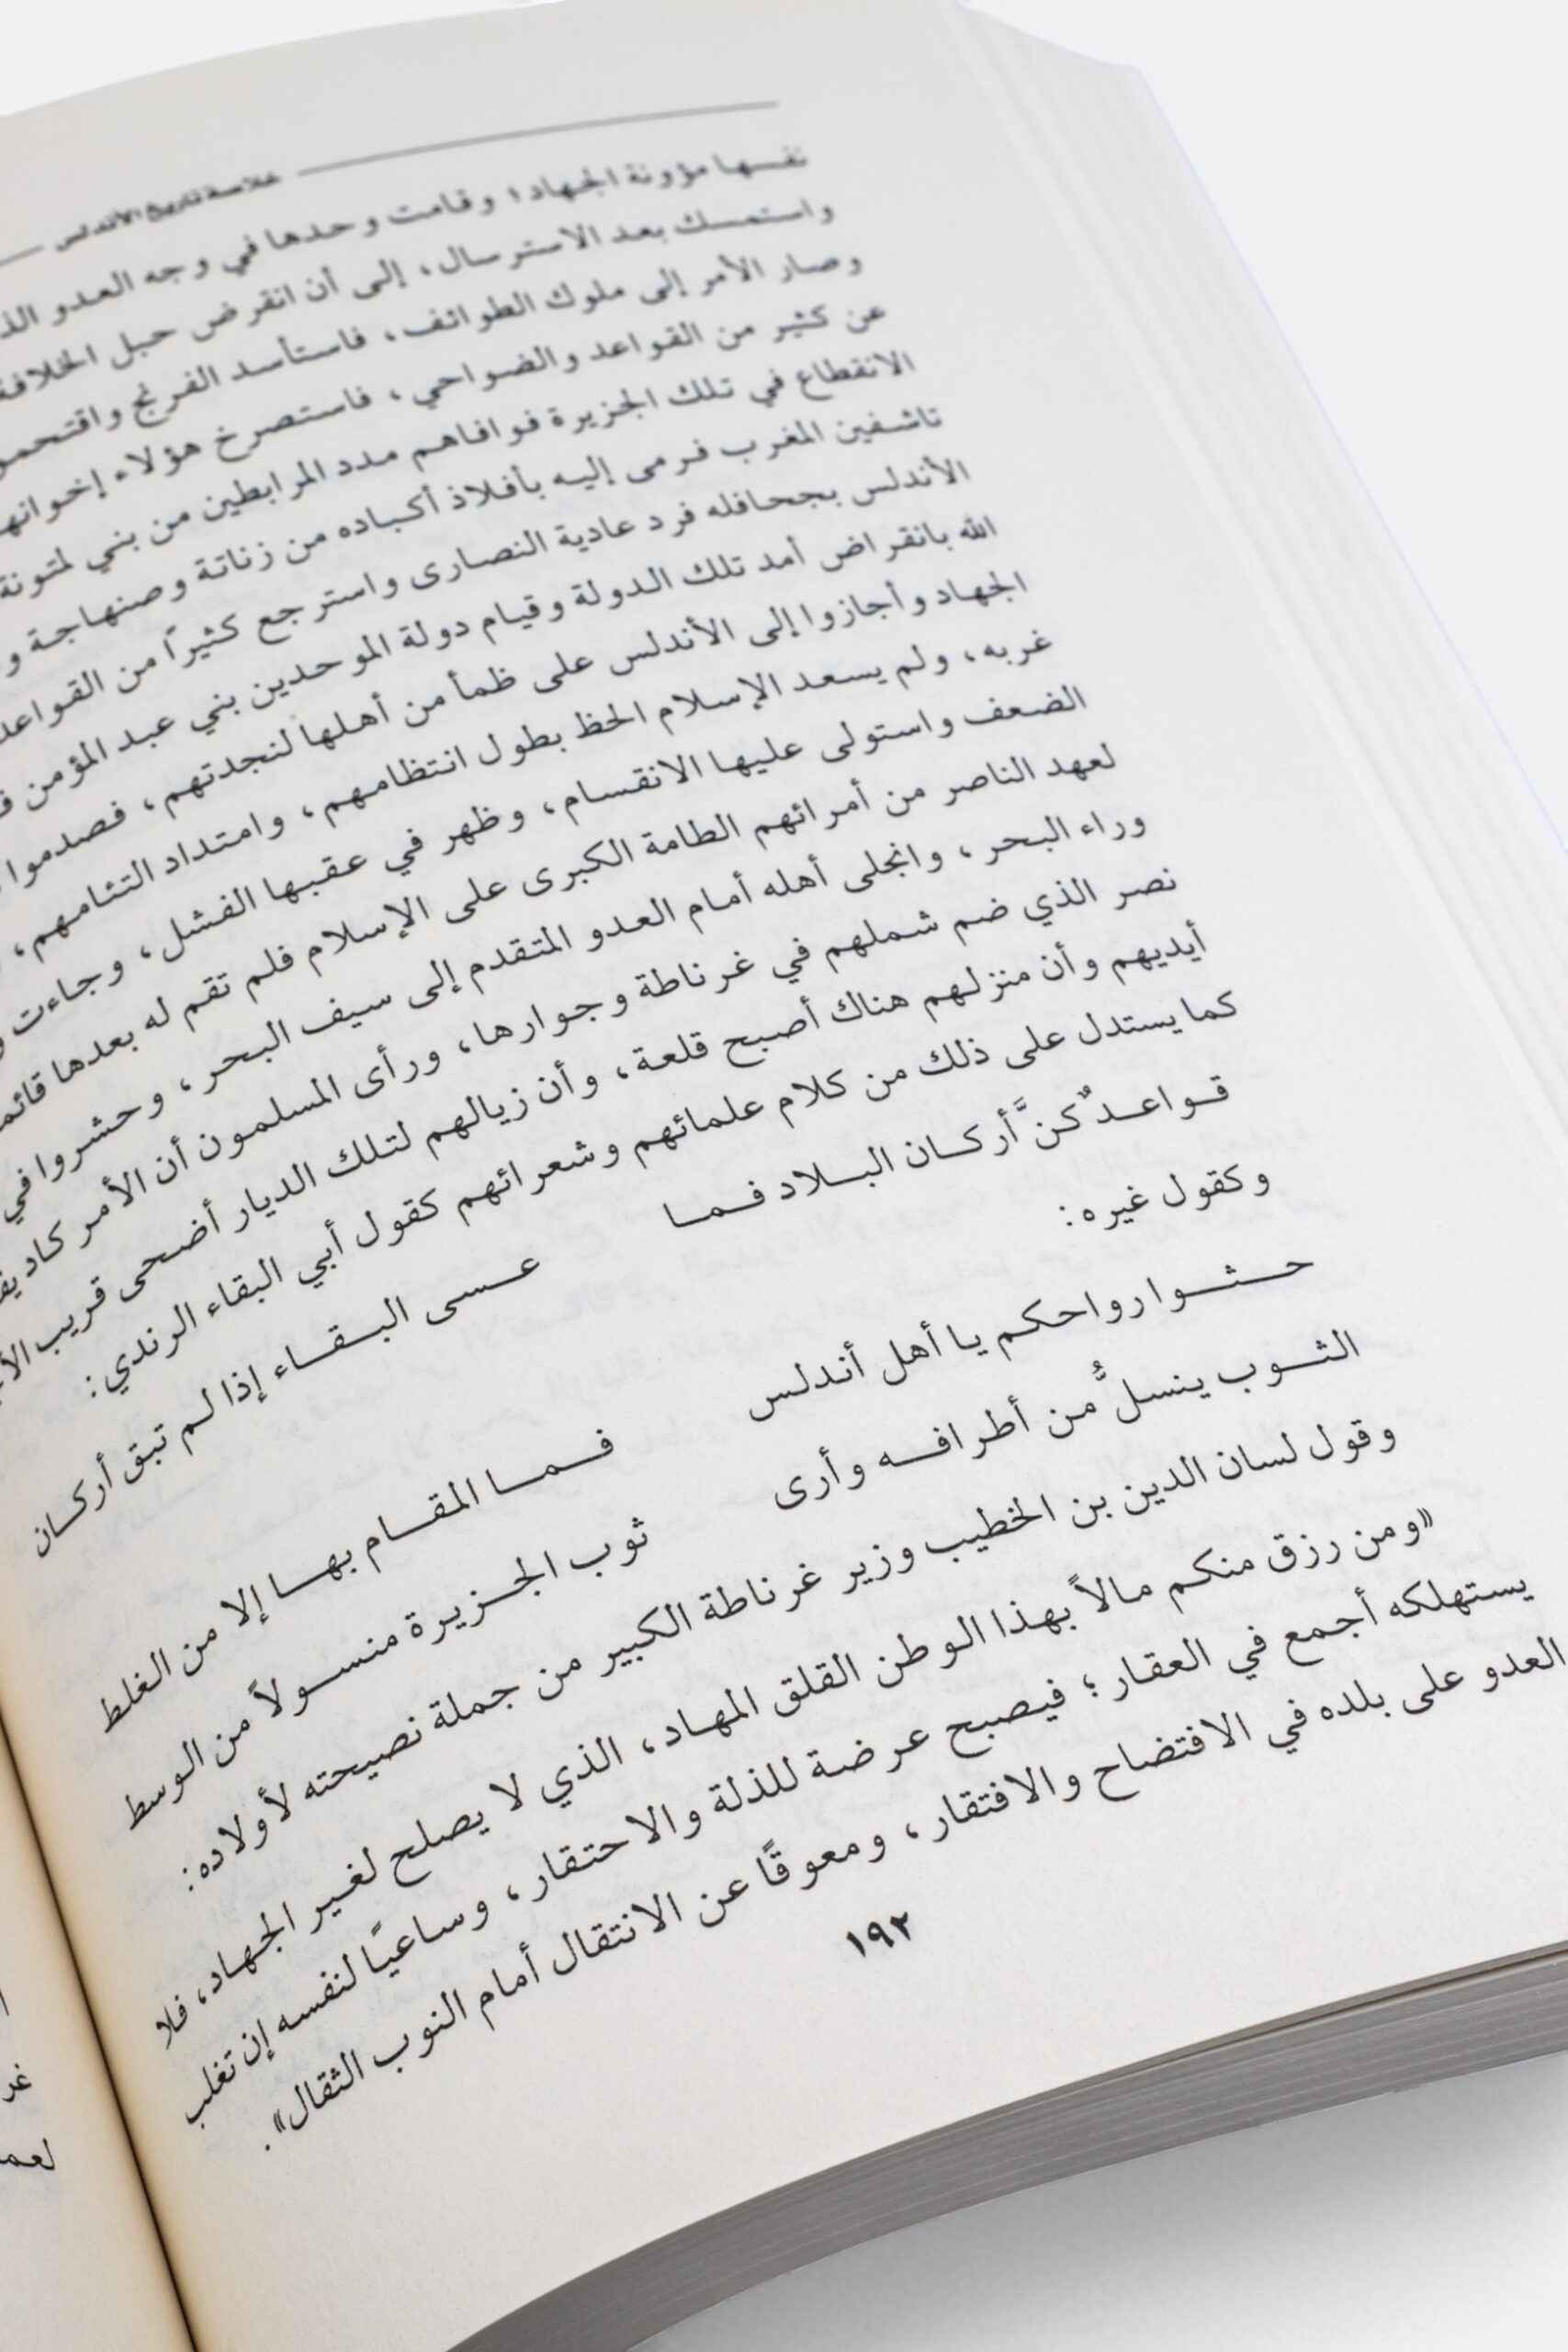 خلاصة تاريخ الأندلس
نفسها مؤونة الجهاد؛ وقامت وحدها في وجه العدو الذ
واستمسك بعد الاسترسال، إلى أن انقرض حبل الخلافة
وصار الأمر إلى ملوك الطوائف، فاستأسد الفرنج واقتحمو
عن كثير من القواعد والضواحي، فاستصرخ هؤلاء إخوانه
الانقطاع في تلك الجزيرة فوافاهم مدد المرابطين من بني لمتونة
تاشفين المغرب فرمى إليه بأفلاذ أكباده من زناتة وصنهاجة و
الأندلس بجحافله فرد عادية النصارى واسترجع كثيراً من القواعد
الله بانقراض أمد تلك الدولة وقيام دولة الموحدين بني عبد المؤمن
الجهاد وأجازوا إلى الأندلس على ظمأ من أهلها لنجدتهم، فصدموا
غربه، ولم يسعد الإسلام الحظ بطول انتظامهم، وامتداد التئامهم،
الضعف واستولى عليها الانقسام، وظهر في عقبها الفشل، وجاءت
لعهد الناصر من أمرائهم الطامة الكبرى على الإسلام فلم تقم له بعدها قائم
وراء البحر، وانجلى أهله أمام العدو المتقدم إلى سيف البحر، وحشروا في
نصر الذي ضم شملهم في غرناطة وجوارها، ورأى المسلمون أن الأمر كاد
أيديهم وأن منزلهم هناك أصبح قلعة، وأن زيالهم لتلك الديار أضحى قريب
كما يستدل على ذلك من كلام علمائهم وشعرائهم كقول أبي البقاء الرندي:
قواعدٌ كنَّ أركان البلاد فما عسى البقاء إذا لم تبق أركان
وكقول غيره:
حثوا رواحكم يا أهل أندلس فما المقام بها إلا من الغلط
الثوب ينسلُّ من أطرافه وأرى ثوب الجزيرة منسولاً من الوسط
وقول لسان الدين بن الخطيب وزير غرناطة الكبير من جملة نصيحته لأولاده:
«ومن رزق منكم مالاً بهذا الوطن القلق المهاد، الذي لا يصلح لغير الجهاد، فلا
يستهلكه أجمع في العقار؛ فيصبح عرضة للذلة والاحتقار، وساعيًا لنفسه إن تغلب
العدو على بلده في الافتضاح والافتقار، ومعوقًا عن الانتقال أمام النوب الثقال».
١٩٢